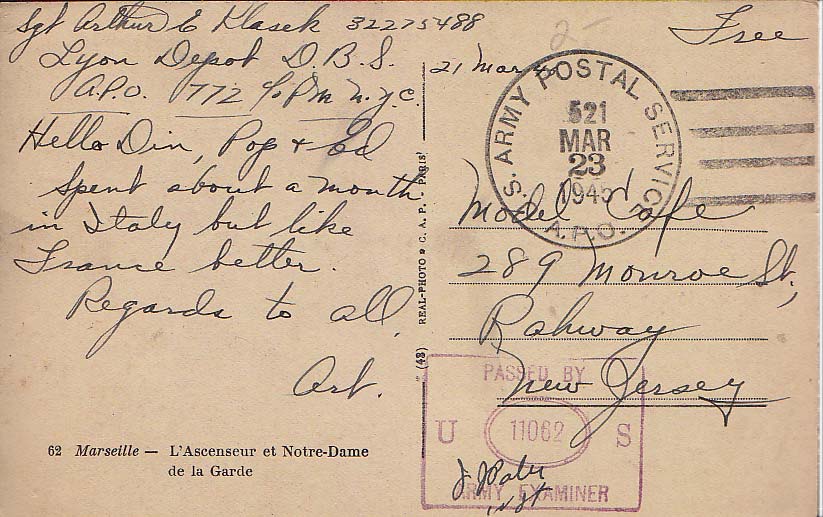 Sgt Arthur E Klasek 32275488
Lyon Depot D.B.S.
A.P.O. 772 c/o P.M. N.Y.C.
Hello Din, Pop + Ed
Spent about a month
in Italy but like
France better.
Regards to all,
Art.
62 Marseille — L'Ascenseur et Notre-Dame
de la Garde
(43) REAL-PHOTO C. A. P. - PARIS
2-
Free
21 Mar 45
U.S. ARMY POSTAL SERVICE
521
MAR
23
1945
A.P.O.
Model Cafe
289 Monroe St,
Rahway
New Jersey
PASSED BY
U 11062 S
ARMY EXAMINER